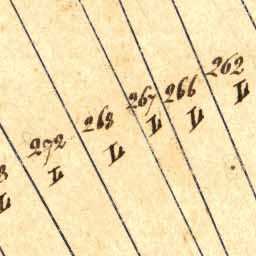 272
L
268
L
267
L
266
L
262
L
L